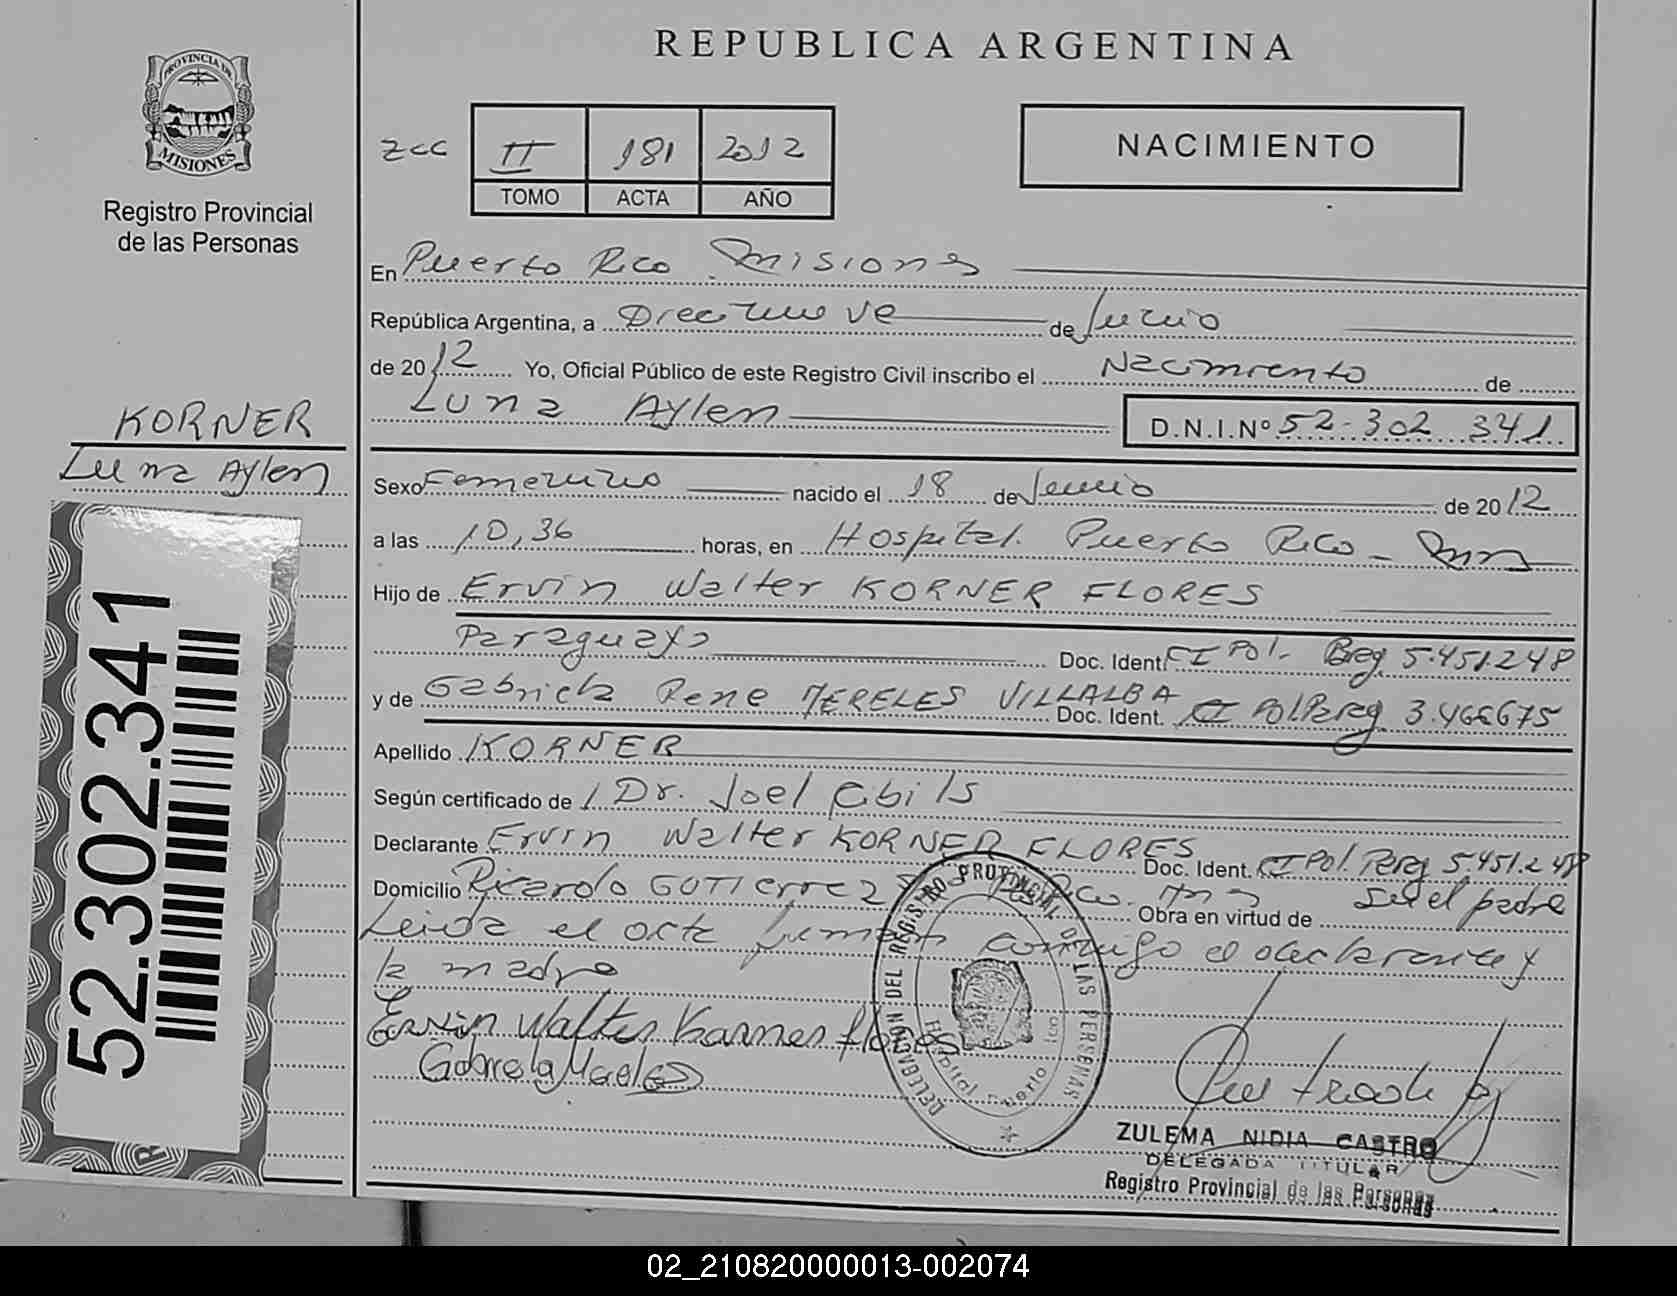 REPUBLICA ARGENTINA
PROVINCIA DE
MISIONES
Registro Provincial
de las Personas
zcc II 181 2012
TOMO ACTA AÑO
NACIMIENTO
En Puerto Rico Misiones
República Argentina, a Diecinueve de Junio
de 2012 Yo, Oficial Público de este Registro Civil inscribo el Nacimiento de
Luna Aylen D.N.I.Nº 52.302 341
KORNER
Luna Aylen
52.302.341
Sexo Femenino nacido el 18 de Junio de 2012
a las 10,36 horas, en Hospital. Puerto Rico - Mnes
Hijo de Ervin Walter KORNER FLORES
Paraguayo Doc. Ident. CI Pol. Preg. 5.451.248
y de Gabriela Rene MERELES VILLALBA Doc. Ident. CI Pol Pareg. 3.466675
Apellido KORNER
Según certificado de Dr. Joel
Declarante Ervin Walter KORNER FLORES Doc. Ident. CI Pol. Pareg 5.451.248
Domicilio Ricardo GUTIERREZ Obra en virtud de Ser el padre
Leida el acta firman conmigo el declarante y
la madre
Ervin Walter Korner flores
Gabriela Mereles
DELEGACION DEL REGISTRO PROVINCIAL DE LAS PERSONAS
Hospital Puerto
ZULEMA NIDIA CASTRO
DELEGADA TITULAR
Registro Provincial de las Personas
02_210820000013-002074